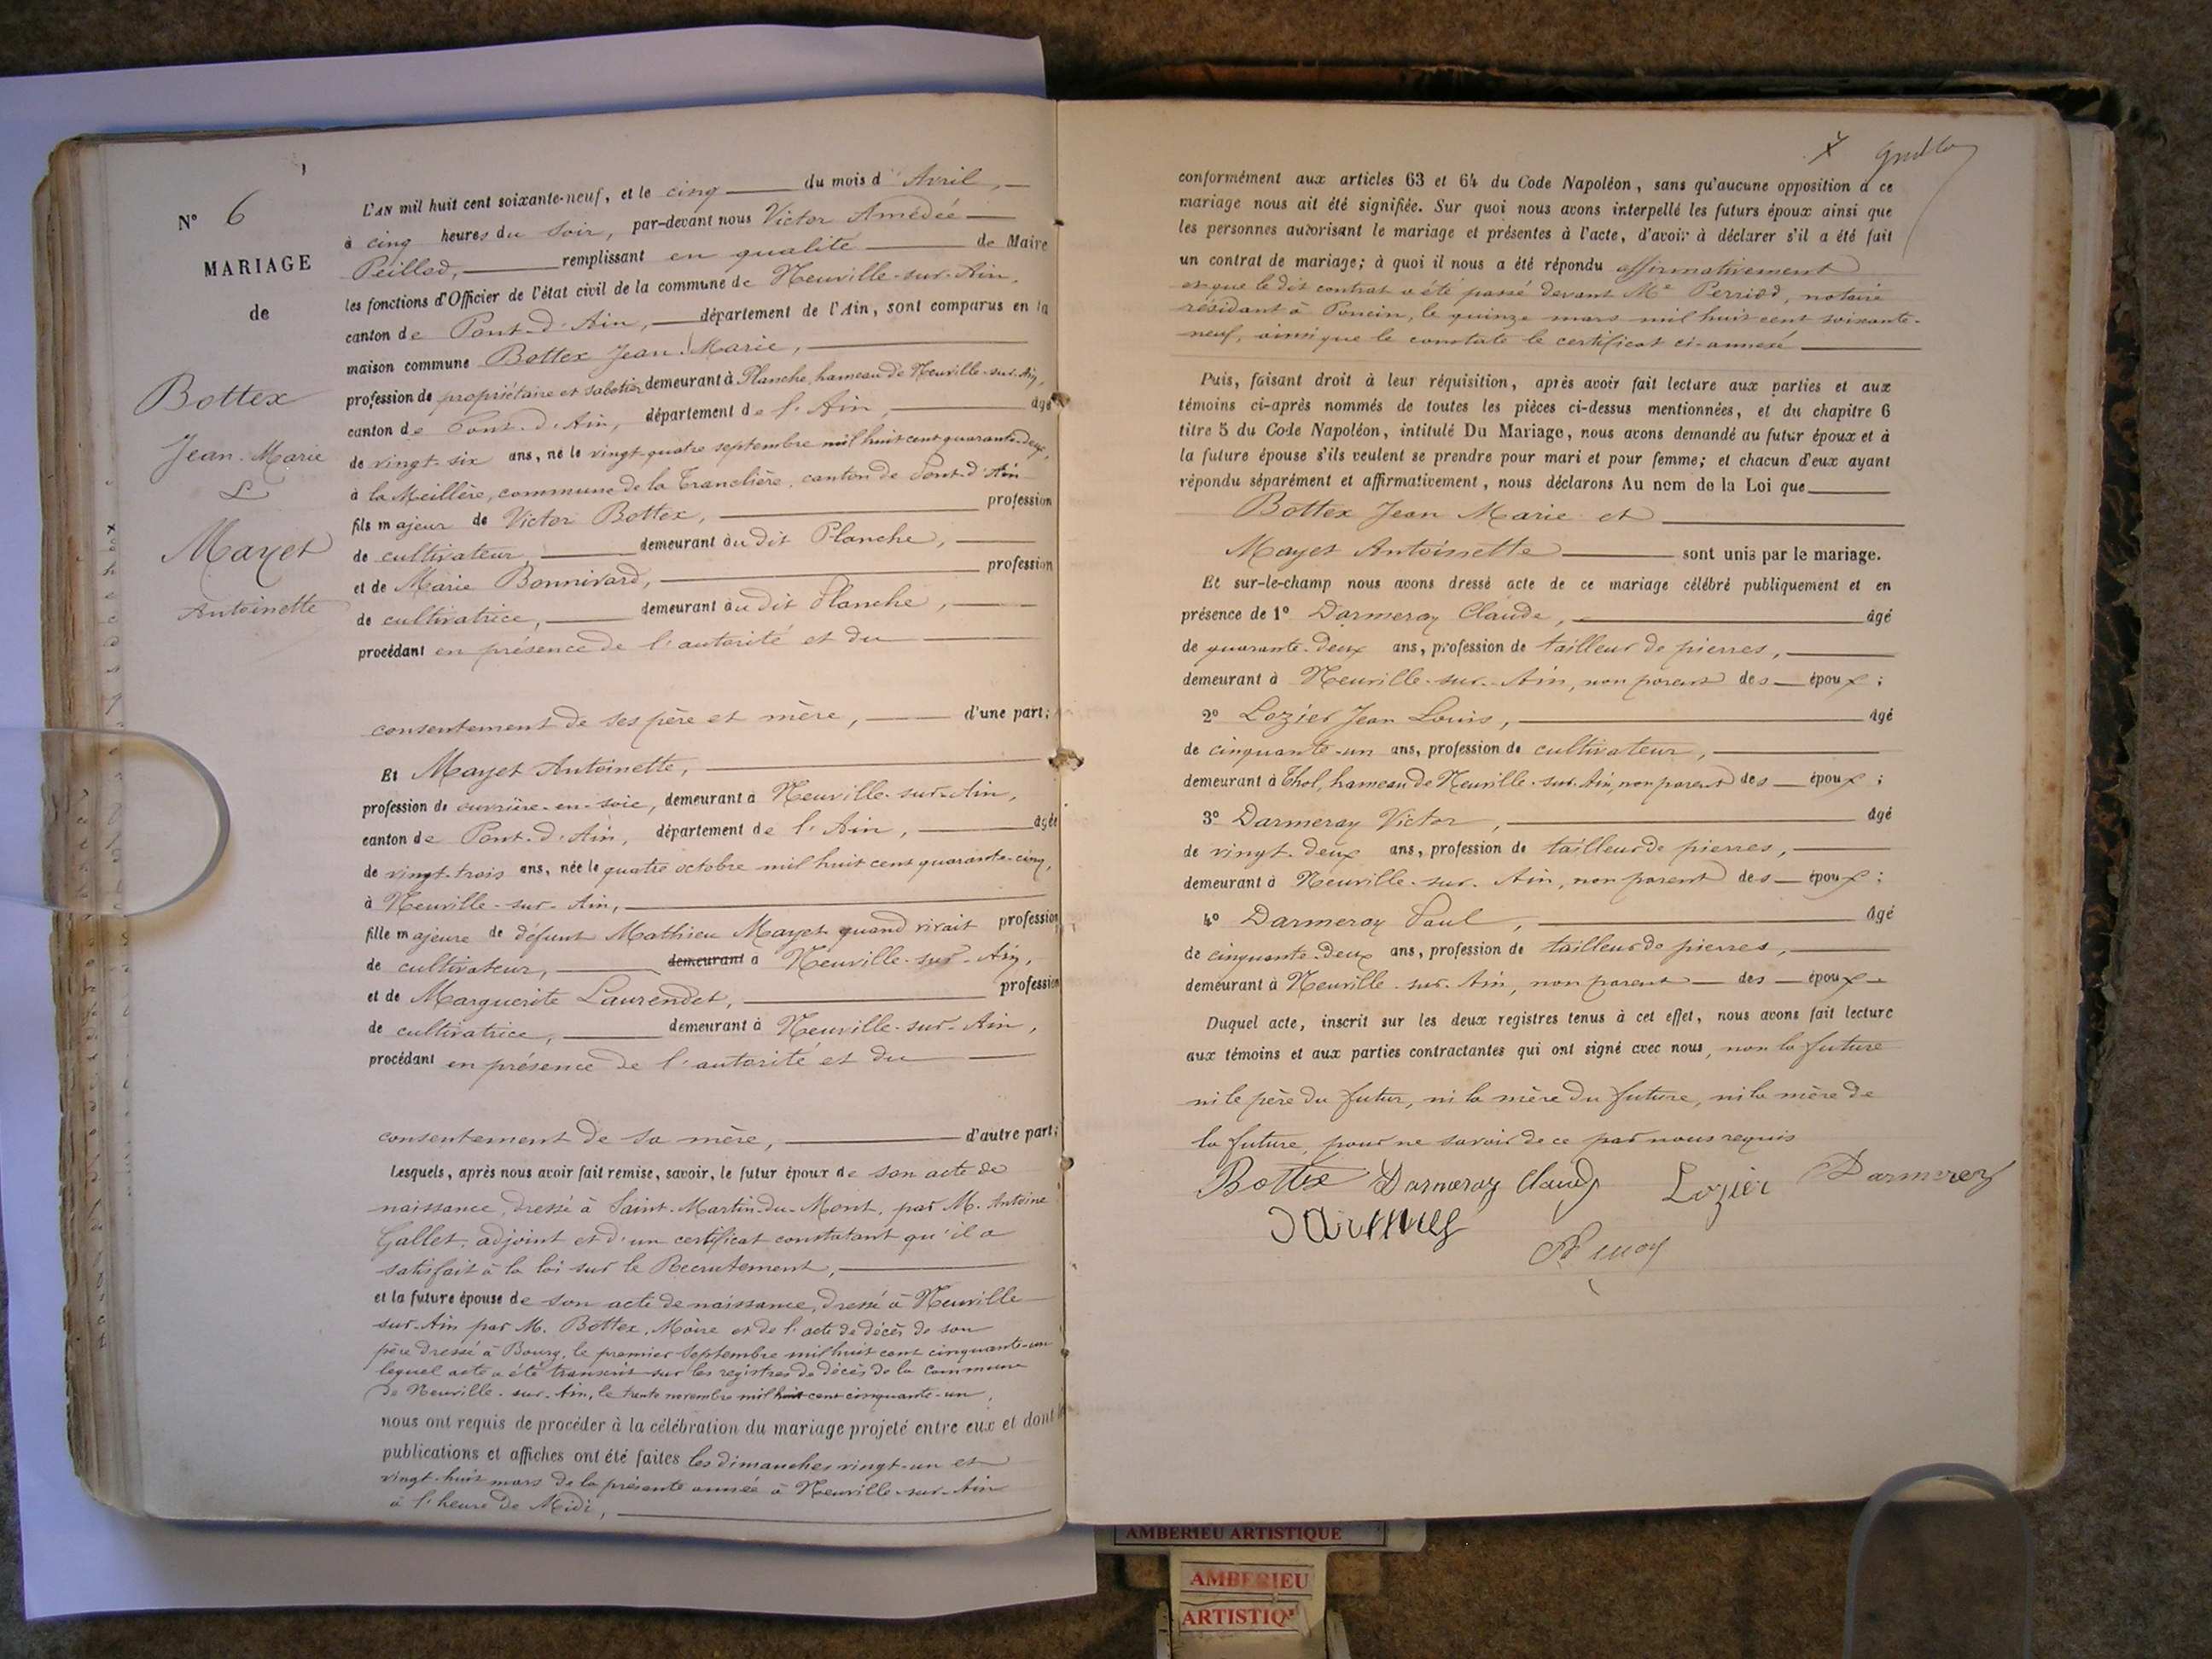 N° 6
MARIAGE
de
Bottex
Jean-Marie
&
Mayet
Antoinette
L'AN mil huit cent soixante-neuf, et le cinq du mois d'Avril,
à cinq heures du soir, par-devant nous Victor Amédée
Peillod, remplissant en qualité de Maire
les fonctions d'Officier de l'état civil de la commune de Neuville-sur-Ain,
canton de Pont-d'Ain, département de l'Ain, sont comparus en la
maison commune Bottex Jean-Marie,
profession de propriétaire et sabotier demeurant à Planche, hameau de Neuville-sur-Ain,
canton de Pont-d'Ain, département de l'Ain, âgé
de vingt-six ans, né le vingt-quatre septembre mil huit cent quarante-deux,
à la Meillère, commune de la Tranclière, canton de Pont-d'Ain
fils majeur de Victor Bottex, profession
de cultivateur, demeurant audit Planche,
et de Marie Bonnivard, profession
de cultivatrice, demeurant audit Planche,
procédant en présence de l'autorité et du
consentement de ses père et mère, d'une part;
Et Mayet Antoinette,
profession de ouvrière-en-soie, demeurant à Neuville-sur-Ain,
canton de Pont-d'Ain, département de l'Ain, âgée
de vingt-trois ans, née le quatre octobre mil huit cent quarante-cinq,
à Neuville-sur-Ain,
fille majeure de défunt Mathieu Mayet quand vivait profession
de cultivateur, demeurant à Neuville-sur-Ain,
et de Marguerite Laurendet, profession
de cultivatrice, demeurant à Neuville-sur-Ain,
procédant en présence de l'autorité et du
consentement de sa mère, d'autre part;
Lesquels, après nous avoir fait remise, savoir, le futur époux de son acte de
naissance, dressé à Saint-Martin-du-Mont, par M. Antoine
Gallet, adjoint et d'un certificat constatant qu'il a
satisfait à la loi sur le Recrutement,
et la future épouse de son acte de naissance, dressé à Neuville
sur-Ain par M. Bottex, Maire et de l'acte de décès de son
père dressé à Bourg, le premier Septembre mil huit cent cinquante-un
lequel acte a été transcrit sur les registres de décès de la Commune
de Neuville-sur-Ain, le trente novembre mil huit cent cinquante-un,
nous ont requis de procéder à la célébration du mariage projeté entre eux et dont
publications et affiches ont été faites les dimanches vingt-un et
vingt-huit mars de la présente année à Neuville-sur-Ain
à l'heure de Midi,
conformément aux articles 63 et 64 du Code Napoléon, sans qu'aucune opposition à ce
mariage nous ait été signifiée. Sur quoi nous avons interpellé les futurs époux ainsi que
les personnes autorisant le mariage et présentes à l'acte, d'avoir à déclarer s'il a été fait
un contrat de mariage; à quoi il nous a été répondu affirmativement
et que le dit contrat a été passé devant Me Perriod, notaire
résidant à Poncin, le quinze mars mil huit cent soixante-
neuf, ainsi que le constate le certificat ci-annexé
Puis, faisant droit à leur réquisition, après avoir fait lecture aux parties et aux
témoins ci-après nommés de toutes les pièces ci-dessus mentionnées, et du chapitre 6
titre 5 du Code Napoléon, intitulé Du Mariage, nous avons demandé au futur époux et à
la future épouse s'ils veulent se prendre pour mari et pour femme; et chacun d'eux ayant
répondu séparément et affirmativement, nous déclarons Au nom de la Loi que
Bottex Jean Marie et
Mayet Antoinette sont unis par le mariage.
Et sur-le-champ nous avons dressé acte de ce mariage célébré publiquement et en
présence de 1° Darmeray Claude, âgé
de quarante-deux ans, profession de tailleur de pierres,
demeurant à Neuville-sur-Ain, non parent des époux;
2° Lozier Jean Louis, âgé
de cinquante-un ans, profession de cultivateur,
demeurant à Thol, hameau de Neuville-sur-Ain, non parent des époux;
3° Darmeray Victor, âgé
de vingt-deux ans, profession de tailleur de pierres,
demeurant à Neuville-sur-Ain, non parent des époux;
4° Darmeray Paul, âgé
de cinquante-deux ans, profession de tailleur de pierres,
demeurant à Neuville-sur-Ain, non parent des époux
Duquel acte, inscrit sur les deux registres tenus à cet effet, nous avons fait lecture
aux témoins et aux parties contractantes qui ont signé avec nous, non la future
ni le père du futur, ni la mère du future, ni la mère de
la future, pour ne savoir de ce par nous requis
Bottex Darmeray Claude Lozier Darmerey
AMBERIEU ARTISTIQUE
AMBERIEU
ARTISTIQ